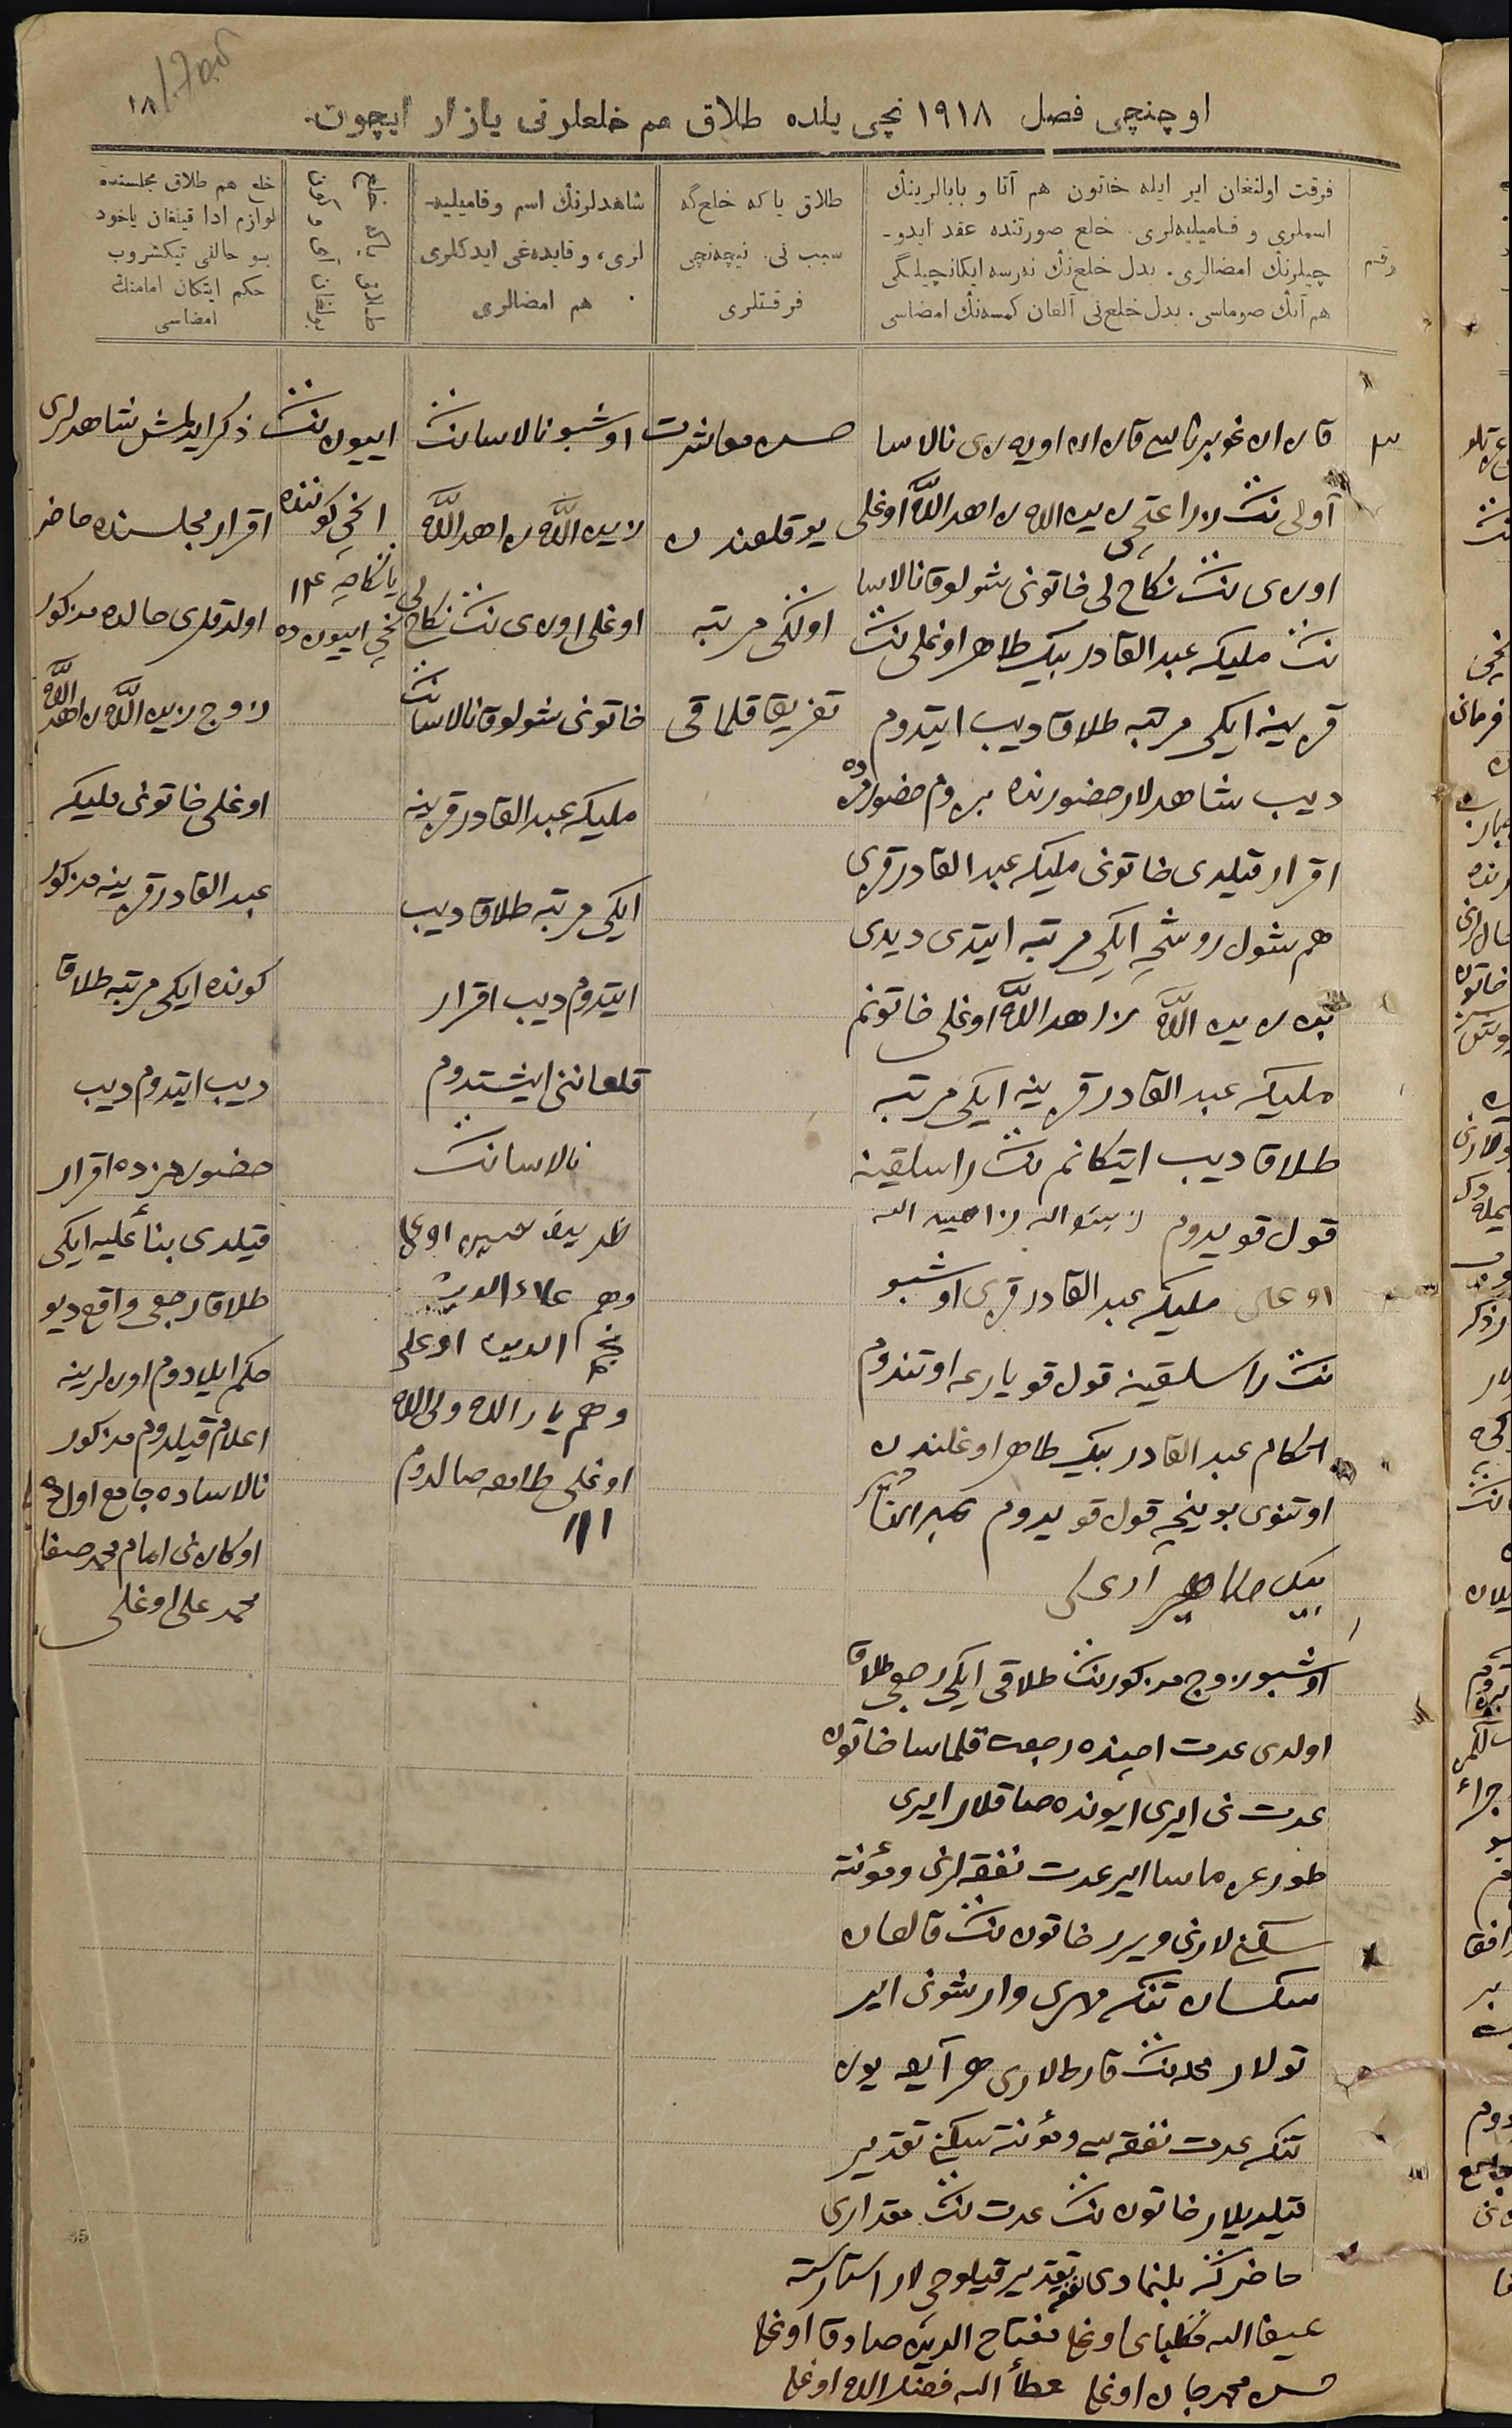 ١٨
اوچنچی فصل ١٩١٨ نچی یلده طلاق هم خلعلرنی یازار ایچون.
رقم
فرقت اولنغان ایر ایله خاتون هم آتا و بابالرینڭ
اسملری و فامیلیه‌لری. خلع صورتنده عقد ایدو-
چیلرنڭ امضالری. بدل خلع‌نڭ نه‌رسه ایکانچیلگی
هم آنڭ صوماسی. بدل خلع‌نی آلغان کمسه‌نڭ امضاسی
طلاق یاکه خلع‌گه
سبب نی. نیچه‌نچی
فرقتلری
شاهدلرنڭ اسم وفامیلیه-
لری، و قایده‌غی ایدکلری
هم امضالری
طلاق یاکه خلع
بولغان آی و کون
خلع هم طلاق مجلسنده
لوازم ادا قیلغان یاخود
بو حالنی تیکشروب
حکم ایتکان امامنڭ
امضاسی
٣
قازان غوبرناسی قازان اویه‌زی نالاسا
آولی ننڭ زراعتچی زیدالله زاهدالله اوغلی
اوزی ننڭ نکاح لی خاتونی شولوق نالاسا
ننڭ ملیکه عبدالقادر بیک طاهر اوغلی ننڭ
قزینه ایکی مرتبه طلاق دیب ایتدوم
دیب شاهدلار حضورنده بزوم حضورمزده
اقرار قیلدی خاتونی ملیکه عبدالقادر قزی
هم شول روشچه ایکی مرتبه ایتدی دیدی
بن زیدالله زاهدالله اوغلی خاتونم
ملیکه عبدالقادر قزینه ایکی مرتبه
طلاق دیب ایتکانم ننڭ راسلقینه
قول قویدوم
اوغلی ملیکه عبدالقادر قزی اوشبو
ننڭ راسلقینه قول قویارغه اوتندوم
آتکام عبدالقادر بیک طاهر اوغلندن
اوتنوی بوینچه قول قویدوم عبدالقادر
بیک طاهر اوغلی
اوشبو زوج مذکورننڭ طلاقی ایکی رجعی طلاق
اولدی عدت اچنده رجعت قلماسا خاتون
عدت نی ایری ایونده صاقلار ایری
طورغزماسا ایر عدت نفقه‌لرنی ومؤنة
سکنی لارنی ویرر خاتون ننڭ قالغان
سکسان تنکه مهری وار شونی ایر
تولار محله‌ننڭ قارطلاری هر آیغه یوز
تنکه عدت نفقه‌سی ومؤنة سکنی تقدیر
قیلدیلار خاتون ننڭ عدت ننڭ مقداری
حاضرگه بلنمادی نفقه تقدیر قیلوچی لار
اوغلی مفتاح الدین صادق اوغلی
محمدجان اوغلی عطاءالله فضل الله اوغلی
حسن معاشرت
یوقلغندن
اولنکی مرتبه
تفریق قلماقی
اوشبو نالاسا ننڭ
زیدالله زاهدالله
اوغلی اوزی ننڭ نکاح لی
خاتونی شولوق نالاسا ننڭ
ملیکه عبدالقادر قزینه
ایکی مرتبه طلاق دیب
ایتدوم دیب اقرار
قلغاننی ایشتدوم
نالاسا ننڭ
ظریف حسین اوغلی
وهم علاءالدین
نجم الدین اوغلی
وهم یارالله ولی الله
اوغلی طامغه صالدوم
ااا
اییون ننڭ
١نچی کوننده
یاڭاچه ١٤
نچی اییون ده
ذکر ایدلمش شاهدلری
اقرار مجلسنده حاضر
اولدقلری حالده مذکور
زوج زیدالله زاهدالله
اوغلی خاتونی ملیکه
عبدالقادر قزینه مذکور
کونده ایکی مرتبه طلاق
دیب ایتدوم دیب
حضورمزده اقرار
قیلدی بناءً علیه ایکی
طلاق رجعی واقع دیو
حکم ایلادوم اوزلرینه
اعلام قیلدوم مذکور
نالاساده جامع اول
اوکازنی امام محمدصفا
محمدعلی اوغلی
35